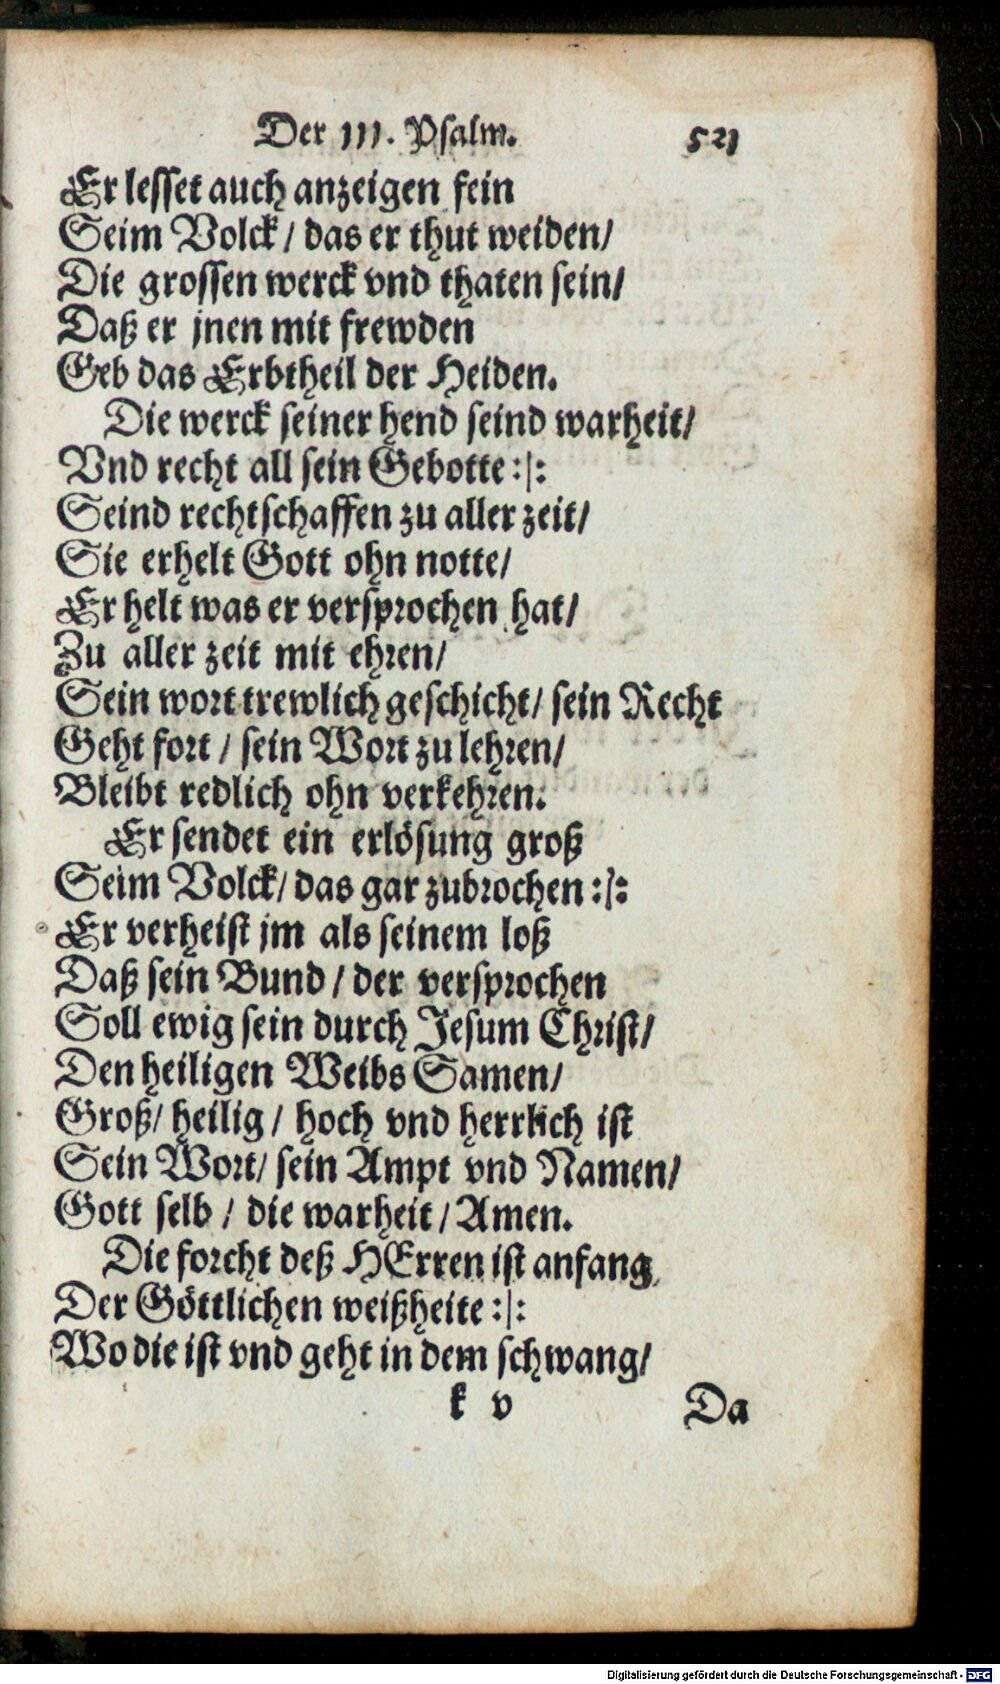 Der 111. Psalm. 521
Er lesset auch anzeigen fein
Seim Volck / das er thut weiden/
Die grossen werck vnd thaten sein/
Daß er jnen mit frewden
Geb das Erbtheil der Heiden.
Die werck seiner hend seind warheit/
Vnd recht all sein Gebotte :|:
Seind rechtschaffen zu aller zeit/
Sie erhelt Gott ohn notte/
Er helt was er versprochen hat/
Zu aller zeit mit ehren/
Sein wort trewlich geschicht/ sein Recht
Geht fort / sein Wort zu lehren/
Bleibt redlich ohn verkehren.
Er sendet ein erlösung groß
Seim Volck/ das gar zubrochen :|:
Er verheist jm als seinem loß
Daß sein Bund / der versprochen
Soll ewig sein durch Jesum Christ/
Den heiligen Weibs Samen/
Groß/ heilig / hoch vnd herrlich ist
Sein Wort/ sein Ampt vnd Namen/
Gott selb / die warheit / Amen.
Die forcht deß HErren ist anfang
Der Göttlichen weißheite :|:
Wo die ist vnd geht in dem schwang/
k v Da
Digitalisierung gefördert durch die Deutsche Forschungsgemeinschaft - DFG